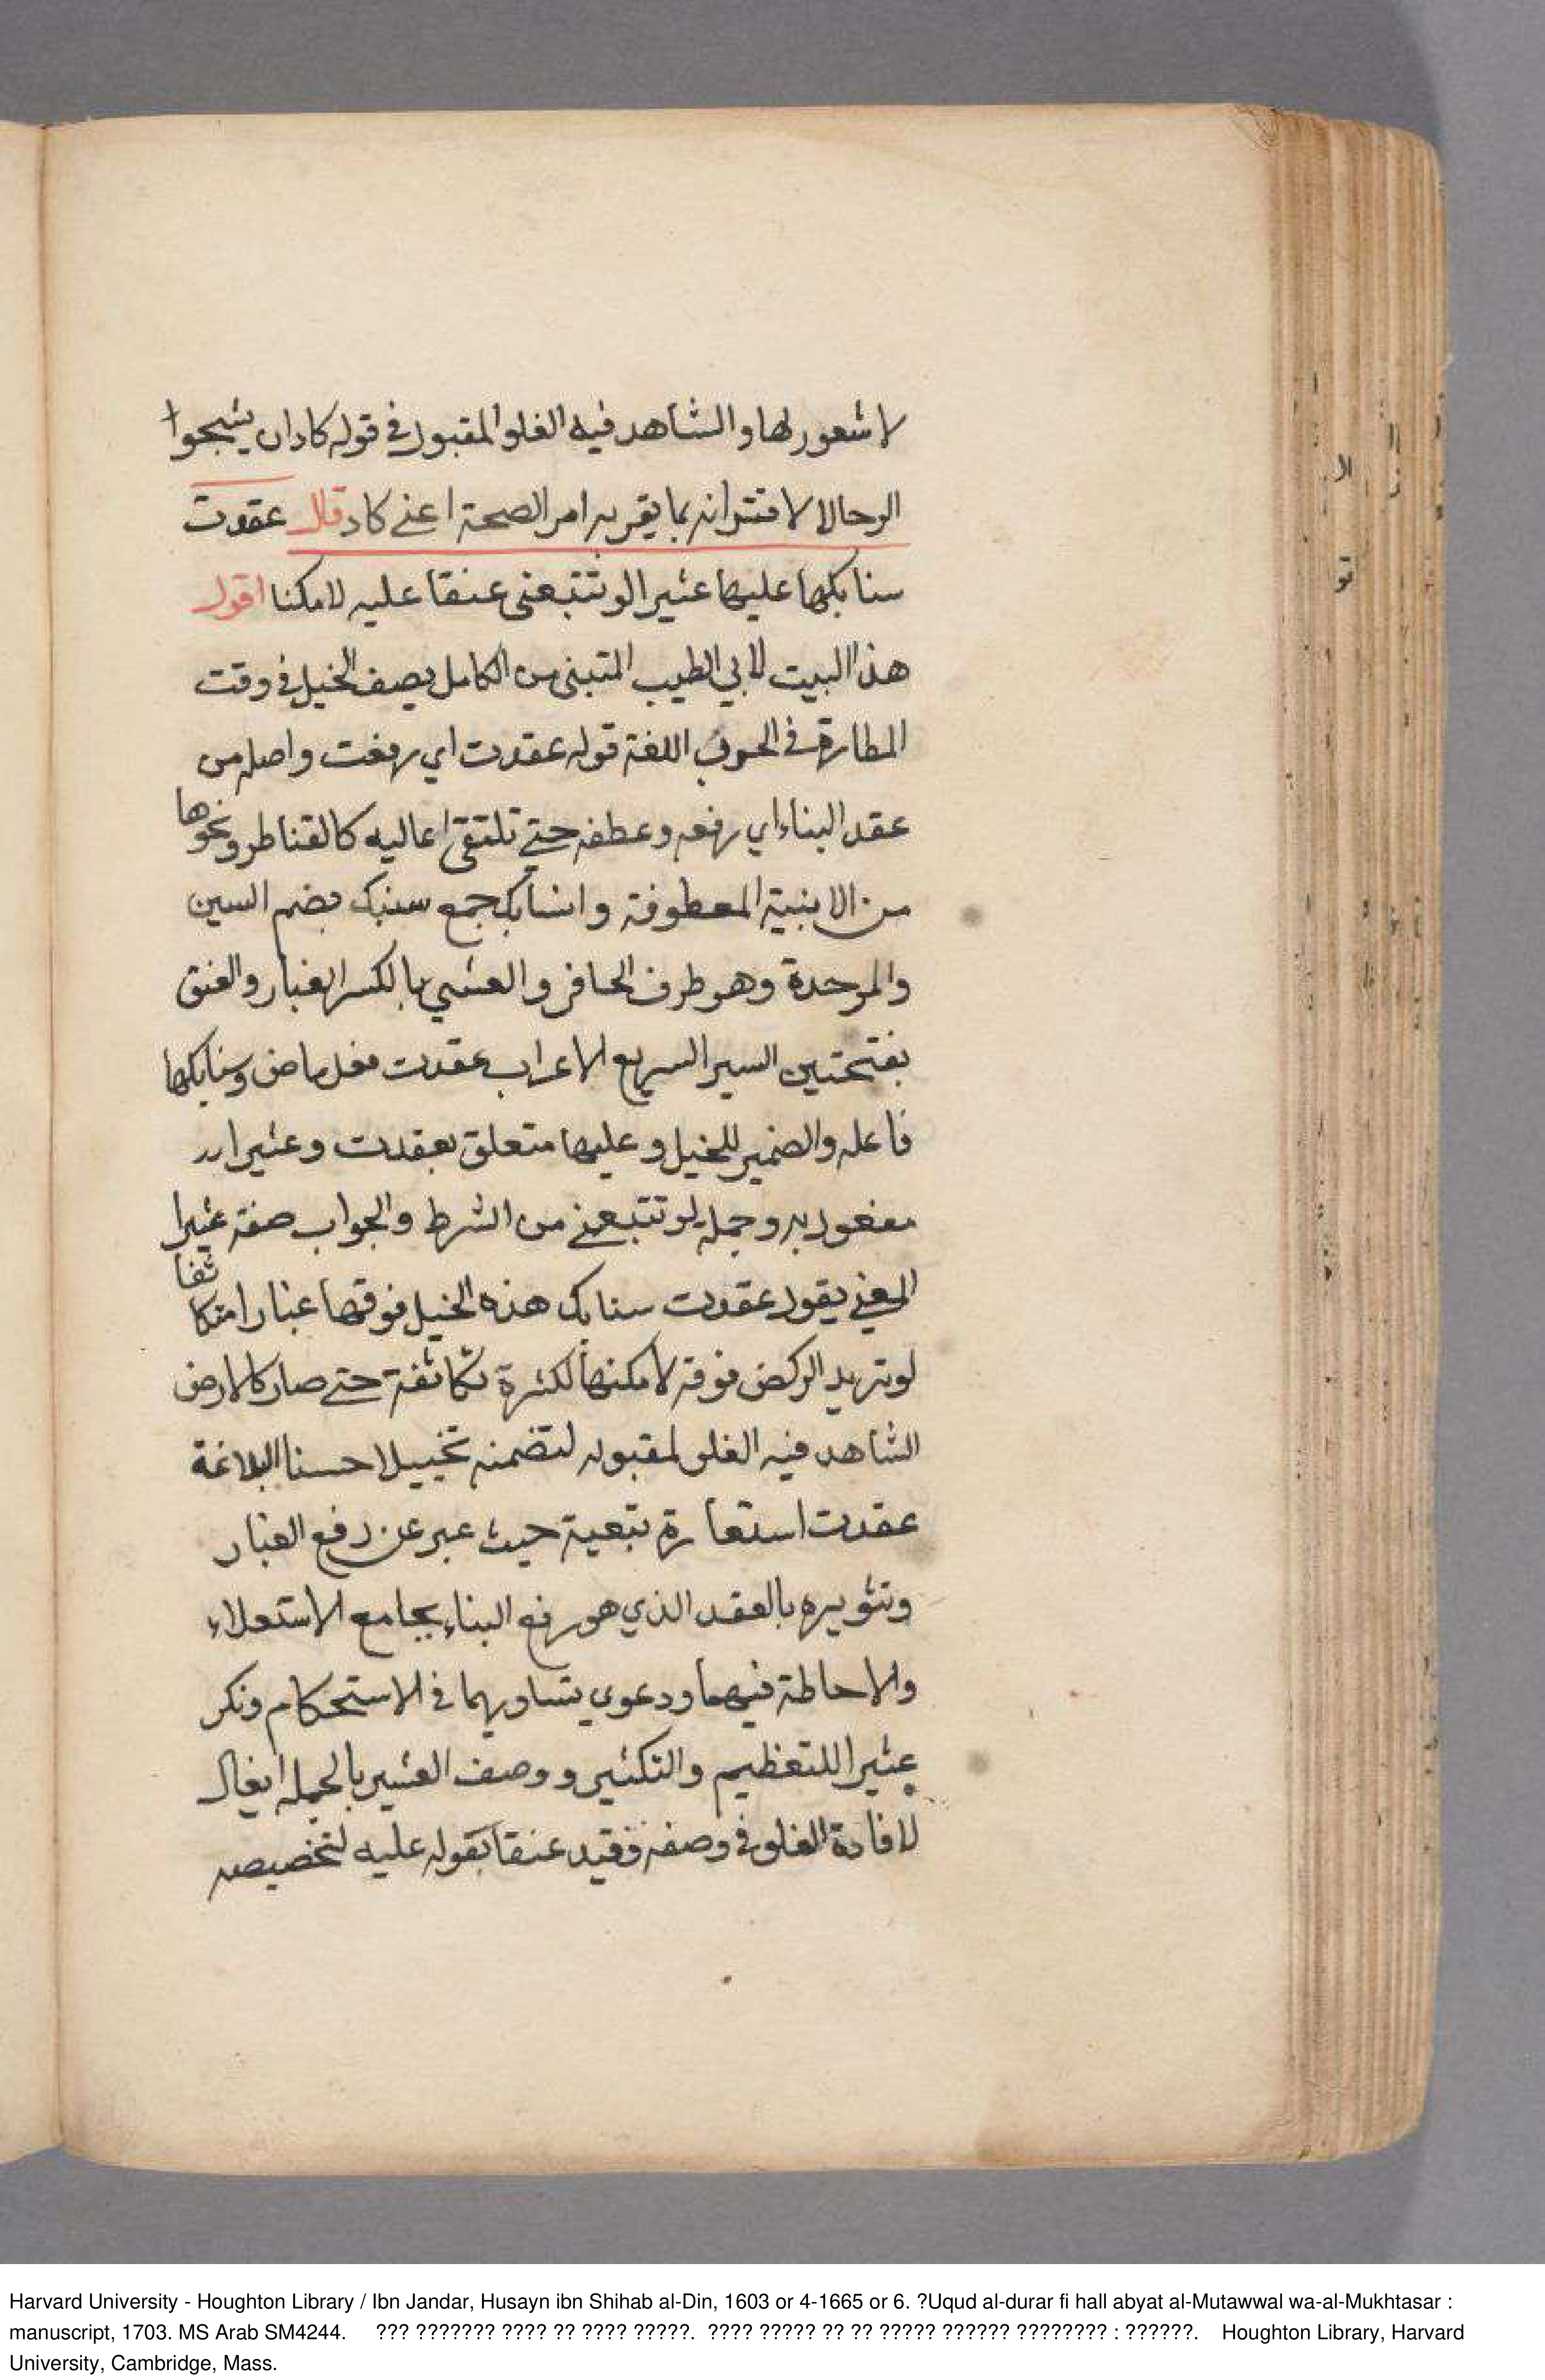 لا شعور لها والشاهد فيه الغلو المقبول في قوله كاد ان يشجوا
الرحالا لاقترانه بما يقربه امر الصحة اعني كاد قال عقدت
سنابكها عليها عثيرا لو تبتغي عنقا عليه لامكنا اقول
هذا البيت لابي الطيب المتبنى من الكامل يصف الخيل في وقت
المطارة في الحرب اللغة قوله عقدت اي رفعت واصله من
عقد البناء اي رفعه وعطفه حتى تلتقى اعاليه كالقناطر ونحوها
من الابنية المعطوفة والسنابك جمع سنبك بضم السين
والموحدة وهو طرف الحافر والعثير بالكسر الغبار والعنق
بفتحتين السير السريع الاعراب عقدت فعل ماض وسنابكها
فاعله والضمير للخيل وعليها متعلق بعقدت وعثيرا
مفعول به وجملة لو تبتغي من الشرط والجواب صفة عثيرا
المعنى يقول عقدت سنابك هذه الخيل فوقها غبارا متكاثفا
لو تريد الركض فوقه لامكنها لكثرة تكاثفة حتى صار كالارض
الشاهد فيه الغلو لمقبوله لتضمنه تخييلا حسنا البلاغة
عقدت استعارة تبعية حيث عبر عن رفع الغبار
وتثويره بالعقد الذي هو رفع البناء بجامع الاستعلاء
والاحاطة فيهما ودعوى تساويهما في الاستحكام ونكر
عثيرا للتعظيم والتكثير ووصف العثير بالجملة ايغال
لافادة الغلو في وصفه وقيد عنقا بقوله عليه لتخصيصه
Harvard University - Houghton Library / Ibn Jandar, Husayn ibn Shihab al-Din, 1603 or 4-1665 or 6. ?Uqud al-durar fi hall abyat al-Mutawwal wa-al-Mukhtasar :
manuscript, 1703. MS Arab SM4244. ??? ??????? ???? ?? ???? ?????. ???? ????? ?? ?? ????? ?????? ???????? : ??????. Houghton Library, Harvard
University, Cambridge, Mass.